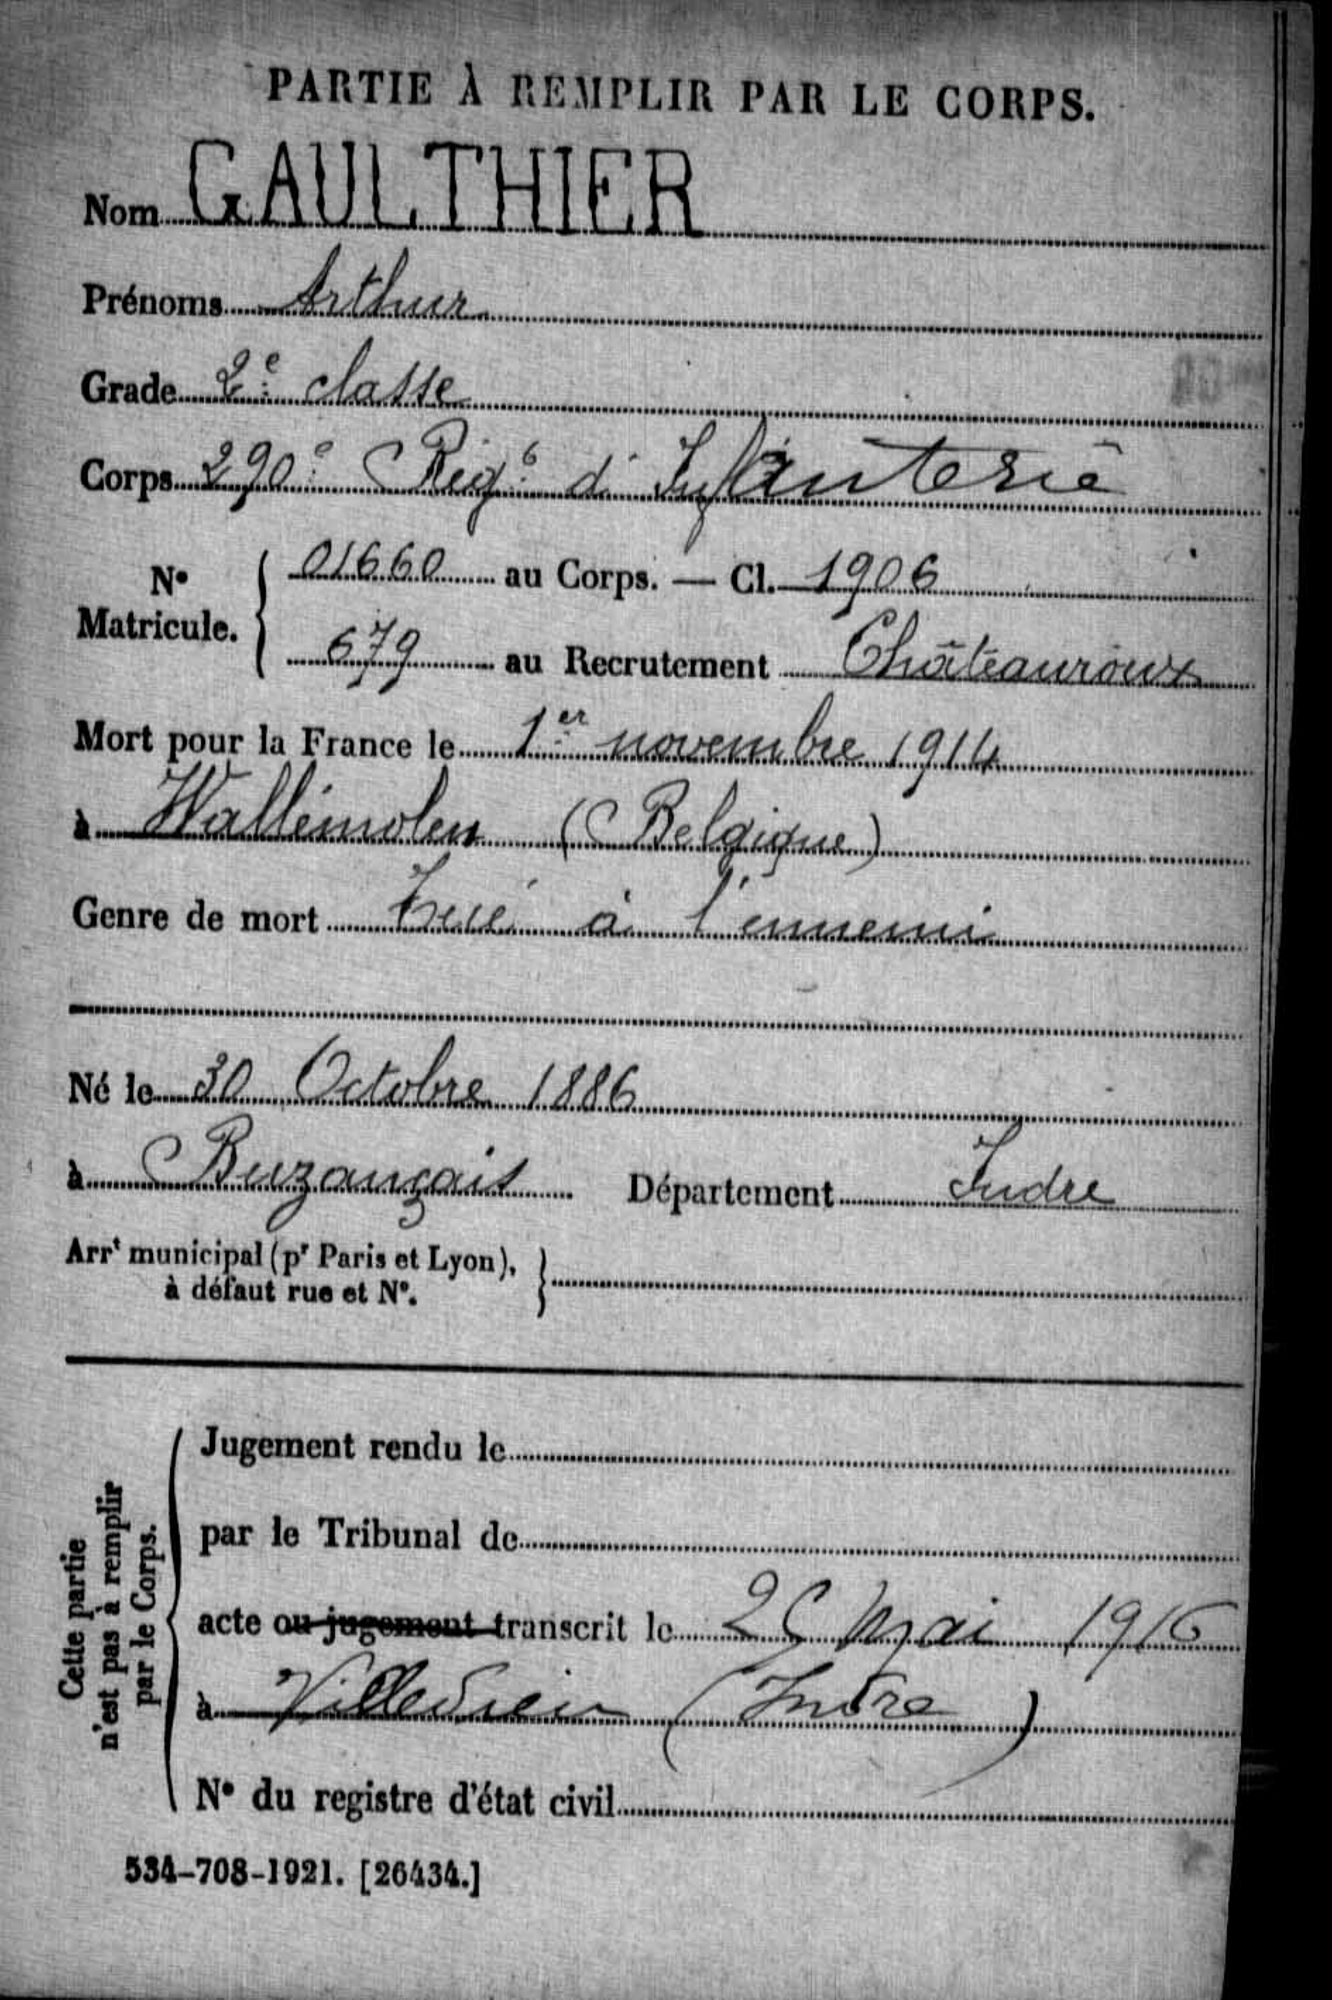 PARTIE À REMPLIR PAR LE CORPS.
Nom GAULTHIER
Prénoms Arthur
Grade 2e classe
Corps 290e Régt d'Infanterie
No Matricule. { 01660 au Corps. — Cl. 1906
679 au Recrutement Châteauroux
Mort pour la France le 1er novembre 1914
à Wallémolen (Belgique)
Genre de mort Tué à l'ennemi
Né le 30 Octobre 1886
à Buzançais Département Indre
Arrt municipal (pr Paris et Lyon), à défaut rue et No. }
Cette partie n'est pas à remplir par le Corps.
Jugement rendu le
par le Tribunal de
acte ou jugement transcrit le mai 1916
à Villedieu (Indre)
No du registre d'état civil
534-708-1921. [26434.]